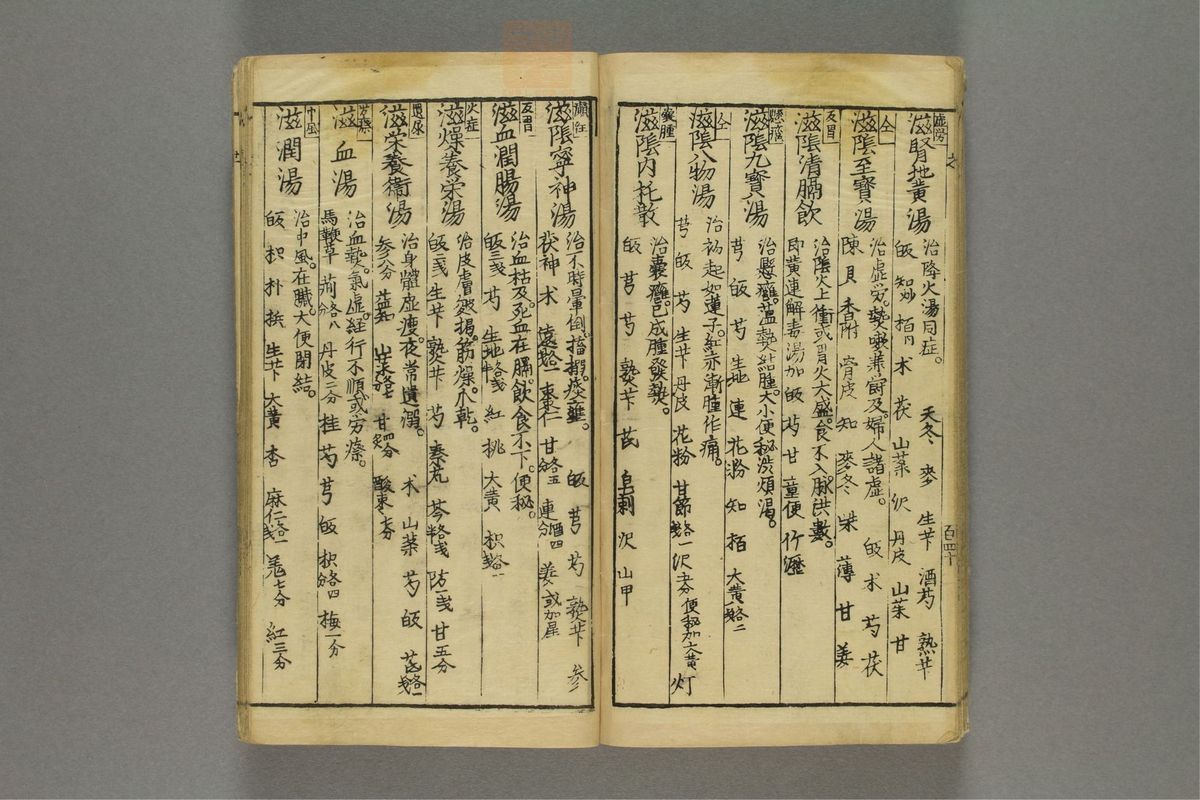 虚労
滋腎地黄湯
治降火湯同症。 天冬 麥 生芐 酒芍 熟芐
皈 知 柏 术 茯 山薬 沢 丹皮 山茱 甘
百四十
仝
滋陰至寶湯
治虚労。熱嗽兼 及婦人諸虚。 皈 术 芍 茯
陳 貝 香附 骨皮 知 麥冬 柴 薄 甘 姜
反胃
滋陰清膈飲
治陰火上衝或胃火大盛。食不入脉洪數。
即黄連解毒湯加皈 芍 甘 童便 竹瀝
懸癰
滋陰九寶湯
治懸癰。藴熱結腫。大小便秘渋煩渇。
芎 皈 芍 生地 連 花粉 知 栢 大黄 二
仝
滋陰八物湯
治初起如蓮子。紅赤漸腫作痛。
芎 皈 芍 生芐 丹皮 花粉 甘節 一 沢 便秘加大黄 灯
嚢腫
滋陰内托散
治嚢癰。已成腫發熱。
皈 芎 芍 熟芐 芪 皂刺 沢 山甲
癲狂
滋陰寧神湯
治不時暈倒。搐搦。痰壅。 皈 芎 芍 熟芐 参
茯神 术 遠 一 棗仁 甘 五 連 酒四分 姜 或加星
反胃
滋血潤腸湯
治血枯及死血在膈。飲食不下。便秘。
皈三 芍 生地 紅 桃 大黄 枳
火症
滋燥養栄湯
治皮膚皴掲。筋燥。爪乾。
皈二 生芐 熟芐 芍 秦艽 芩 防一 甘五分
遺尿
滋栄養衛湯
治身體虚痩夜常遺溺。 术 山薬 芍 皈 芪
参 分 益 山茱 甘 四分 酸棗
滋血湯
治血熱。氣虚。経行不順或労瘵。
馬鞭草 荊 八 丹皮二分 桂 芍 芎 皈 枳 四 梅一分
中風
滋潤湯
治中風。在臓。大便閉結。
皈 枳 朴 梹 生芐 大黄 杏 麻仁 一 羗七分 紅三分